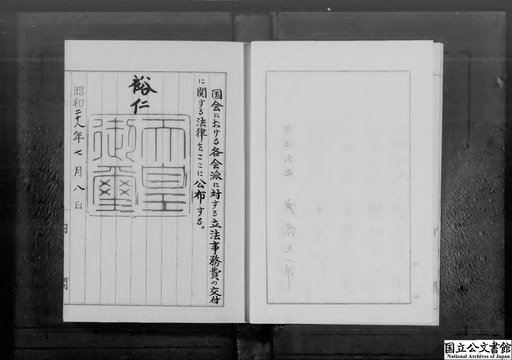 国会における各会派に対する立法事務費の交付
に関する法律をここに公布する。
裕仁
天皇
御璽
昭和二十八年七月八日
国立公文書館
National Archives of Japan